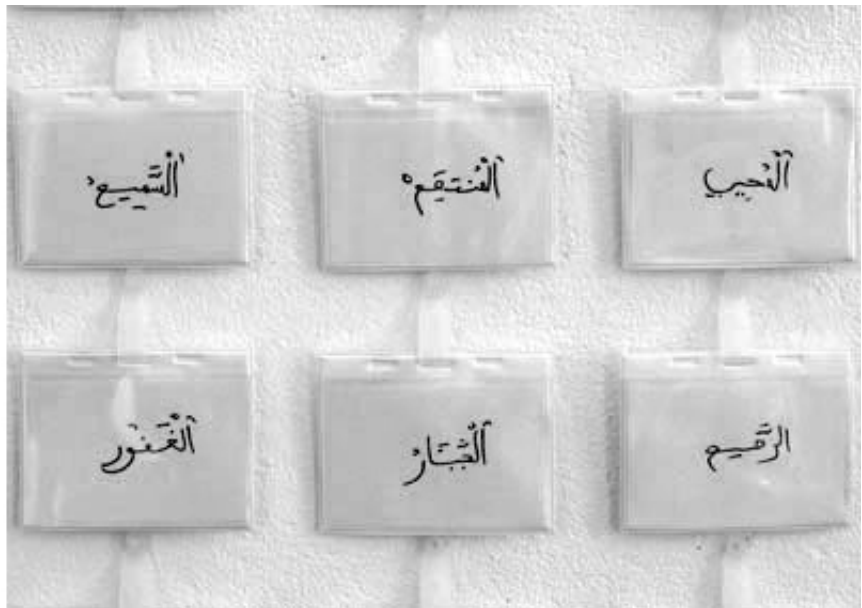 اَلْمُنتَقِمُ
اَلْسَّمِيعُ
الرَّحِيم
اَلْجَبَّارُ
اَلْغَفُور